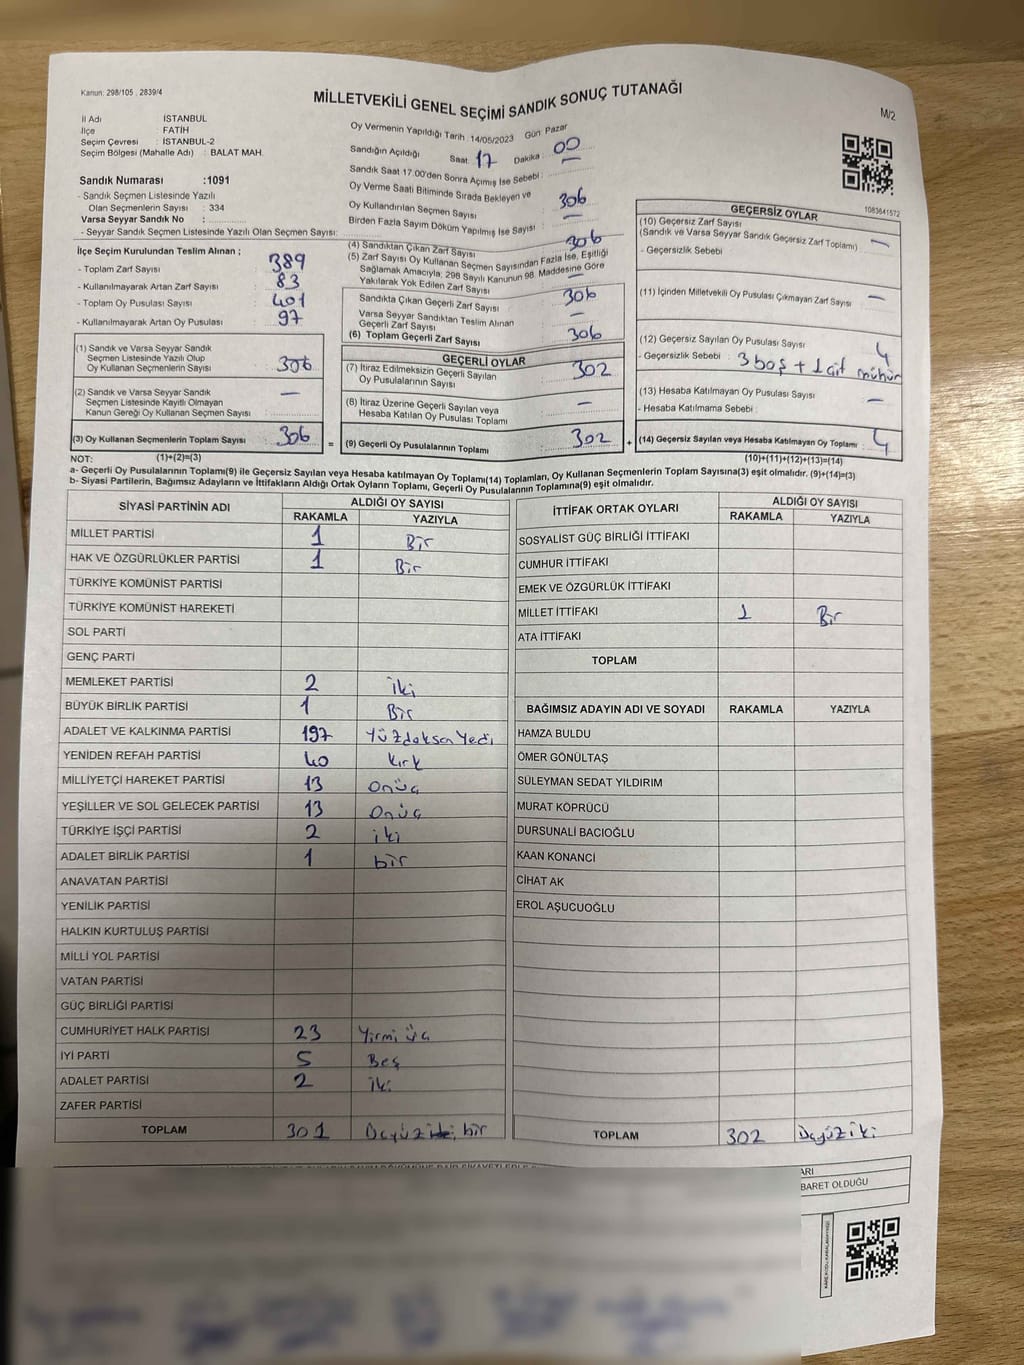 Kanun: 298/105 , 2839/4
MİLLETVEKİLİ GENEL SEÇİMİ SANDIK SONUÇ TUTANAĞI
M/2
İl Adı : İSTANBUL
İlçe : FATİH
Seçim Çevresi : İSTANBUL-2
Seçim Bölgesi (Mahalle Adı) : BALAT MAH.
Sandık Numarası :1091
- Sandık Seçmen Listesinde Yazılı
Olan Seçmenlerin Sayısı : 334
Varsa Seyyar Sandık No :
- Seyyar Sandık Seçmen Listesinde Yazılı Olan Seçmen Sayısı:
Oy Vermenin Yapıldığı Tarih : 14/05/2023 Gün: Pazar
Sandığın Açıldığı Saat 17 Dakika : 00
Sandık Saat 17.00'den Sonra Açımış İse Sebebi : —
Oy Verme Saati Bitiminde Sırada Bekleyen ve
Oy Kullandırılan Seçmen Sayısı : 306
Birden Fazla Sayım Döküm Yapılmış İse Sayısı : —
1083641572
İlçe Seçim Kurulundan Teslim Alınan ;
- Toplam Zarf Sayısı : 389
- Kullanılmayarak Artan Zarf Sayısı : 83
- Toplam Oy Pusulası Sayısı : 401
- Kullanılmayarak Artan Oy Pusulası : 97
(1) Sandık ve Varsa Seyyar Sandık
Seçmen Listesinde Yazılı Olup
Oy Kullanan Seçmenlerin Sayısı : 306
(2) Sandık ve Varsa Seyyar Sandık
Seçmen Listesinde Kayıtlı Olmayan
Kanun Gereği Oy Kullanan Seçmen Sayısı : —
(3) Oy Kullanan Seçmenlerin Toplam Sayısı : 306
(4) Sandıktan Çıkan Zarf Sayısı : 306
(5) Zarf Sayısı Oy Kullanan Seçmen Sayısından Fazla İse, Eşitliği
Sağlamak Amacıyla; 298 Sayılı Kanunun 98. Maddesine Göre
Yakılarak Yok Edilen Zarf Sayısı : —
Sandıkta Çıkan Geçerli Zarf Sayısı : 306
Varsa Seyyar Sandıktan Teslim Alınan
Geçerli Zarf Sayısı : —
(6) Toplam Geçerli Zarf Sayısı : 306
GEÇERLİ OYLAR
(7) İtiraz Edilmeksizin Geçerli Sayılan
Oy Pusulalarının Sayısı : 302
(8) İtiraz Üzerine Geçerli Sayılan veya
Hesaba Katılan Oy Pusulası Toplamı : —
= (9) Geçerli Oy Pusulalarının Toplamı : 302
GEÇERSİZ OYLAR
(10) Geçersiz Zarf Sayısı
(Sandık ve Varsa Seyyar Sandık Geçersiz Zarf Toplamı) : —
- Geçersizlik Sebebi :
(11) İçinden Milletvekili Oy Pusulası Çıkmayan Zarf Sayısı : —
(12) Geçersiz Sayılan Oy Pusulası Sayısı : 4
- Geçersizlik Sebebi : 3 boş + 1 çift mühür
(13) Hesaba Katılmayan Oy Pusulası Sayısı : —
- Hesaba Katılmama Sebebi :
+ (14) Geçersiz Sayılan veya Hesaba Katılmayan Oy Toplamı : 4
NOT: (1)+(2)=(3)
(10)+(11)+(12)+(13)=(14)
a- Geçerli Oy Pusulalarının Toplamı(9) ile Geçersiz Sayılan veya Hesaba katılmayan Oy Toplamı(14) Toplamları, Oy Kullanan Seçmenlerin Toplam Sayısına(3) eşit olmalıdır. (9)+(14)=(3)
b- Siyasi Partilerin, Bağımsız Adayların ve İttifakların Aldığı Ortak Oyların Toplamı, Geçerli Oy Pusulalarının Toplamına(9) eşit olmalıdır.
SİYASİ PARTİNİN ADI ALDIĞI OY SAYISI
RAKAMLA YAZIYLA
MİLLET PARTİSİ 1 Bir
HAK VE ÖZGÜRLÜKLER PARTİSİ 1 Bir
TÜRKİYE KOMÜNİST PARTİSİ
TÜRKİYE KOMÜNİST HAREKETİ
SOL PARTİ
GENÇ PARTİ
MEMLEKET PARTİSİ 2 iki
BÜYÜK BİRLİK PARTİSİ 1 Bir
ADALET VE KALKINMA PARTİSİ 197 Yüzdoksan Yedi
YENİDEN REFAH PARTİSİ 40 kırk
MİLLİYETÇİ HAREKET PARTİSİ 13 Onüç
YEŞİLLER VE SOL GELECEK PARTİSİ 13 Onüç
TÜRKİYE İŞÇİ PARTİSİ 2 iki
ADALET BİRLİK PARTİSİ 1 bir
ANAVATAN PARTİSİ
YENİLİK PARTİSİ
HALKIN KURTULUŞ PARTİSİ
MİLLİ YOL PARTİSİ
VATAN PARTİSİ
GÜÇ BİRLİĞİ PARTİSİ
CUMHURİYET HALK PARTİSİ 23 Yirmi üç
İYİ PARTİ 5 Beş
ADALET PARTİSİ 2 iki
ZAFER PARTİSİ
TOPLAM 301 Üçyüz bir
İTTİFAK ORTAK OYLARI ALDIĞI OY SAYISI
RAKAMLA YAZIYLA
SOSYALİST GÜÇ BİRLİĞİ İTTİFAKI
CUMHUR İTTİFAKI
EMEK VE ÖZGÜRLÜK İTTİFAKI
MİLLET İTTİFAKI 1 Bir
ATA İTTİFAKI
TOPLAM
BAĞIMSIZ ADAYIN ADI VE SOYADI RAKAMLA YAZIYLA
HAMZA BULDU
ÖMER GÖNÜLTAŞ
SÜLEYMAN SEDAT YILDIRIM
MURAT KÖPRÜCÜ
DURSUNALİ BACIOĞLU
KAAN KONANCİ
CİHAT AK
EROL AŞUCUOĞLU
TOPLAM 302 Üçyüz iki
ARI
BARET OLDUĞU